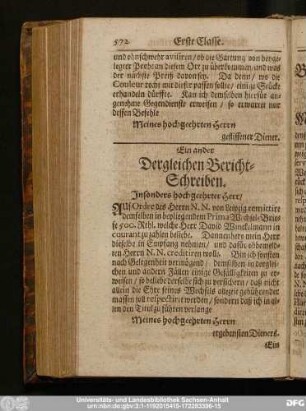 572 Erste Classe.
und ohnschwehr avisiren / ob die Gattung von beyge-
legter Probe an diesem Ort zu überkommen / und was
der nähiste Preiß davon sey. Da denn / wo die
Couleur recht nur diesser passen solte / einige Stücke
erhandeln dürffte. Kan ich demselben hierfür an-
genehme Gegendienste erweisen / so erwarte nur
dessen Befehls
Meines hochgeehrten Herrn
geflissener Diener.
Ein ander
Dergleichen Bericht-
Schreiben.
Insonders hochgeehrter Herr /
Auf Ordre des Herrn N. N. von Leipzig remittire
demselben in beyliegenden Prima Wechsel-Brie-
fe 500. Rthl. welche Herr David Winckelmann in
courant zu zahlen beliebe. Dannenhero mein Herr
dieselbe in Empfang nehmen / und dafür obbemeld-
ten Herrn N. N. creditiren wolle. Bin ich sonsten
nach Gelegenheit vermögend / demselben in derglei-
chen und andern Fällen einige Gefälligkeiten zu er-
weisen / so beliebe derselbe sich zu versichern / daß nicht
allein die Ehre seines Wechsels allezeit gebührender
massen soll respectiret werden / sondern daß ich in al-
len den Titul zu führen verlange
Meines hochgeehrten Herrn
ergebensten Dieners.
Ein
Universitäts- und Landesbibliothek Sachsen-Anhalt
urn:nbn:de:gbv:3:1-1192015415-172282396-15
DFG